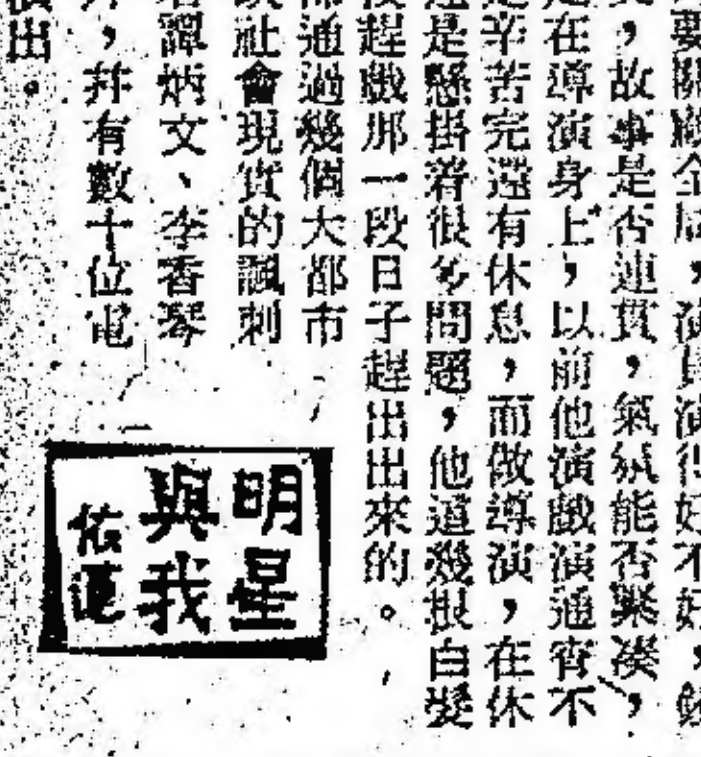 要關顧全局，演員演得好不好，
，故事是否連貫，氣氛能否緊湊，
是在導演身上，以前他演戲演通宵不
是辛苦完還有休息，而做導演，在休
還是懸掛着很多問題，他這幾根白髮
趕戲那一段日子趕出出來的。
部通過幾個大都市
社會現實的諷刺
譚炳文、李香琴
，幷有數十位電
演出。
明星
與我
依蓮